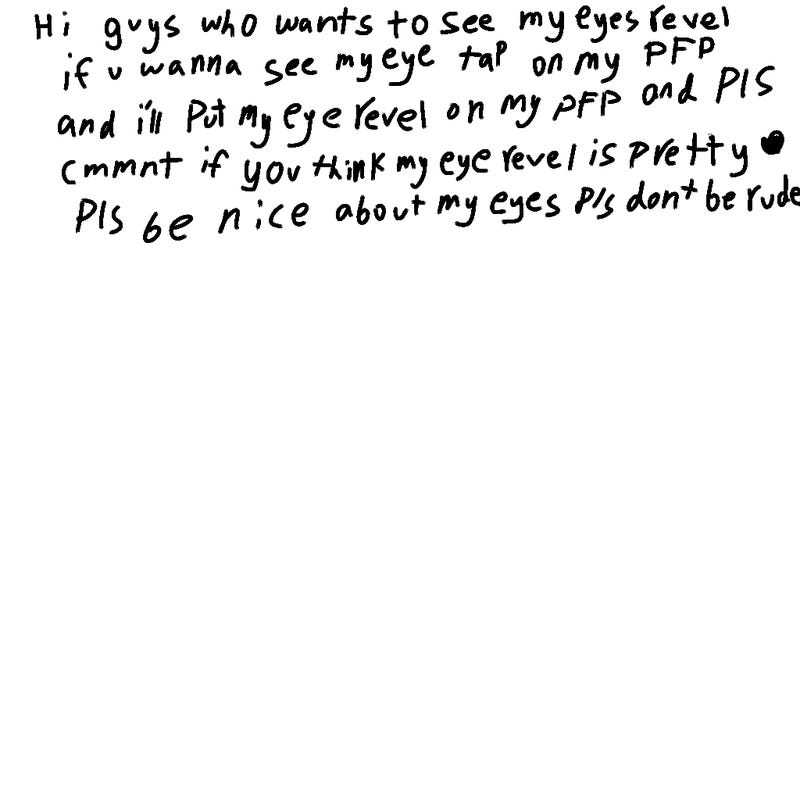 Hi guys who wants to see my eyes revel
if u wanna see my eye tap on my PFP
and i'll Put my eye revel on my PFP and PlS
cmmnt if you think my eye revel is pretty
Pls be nice about my eyes Pls dont be rude